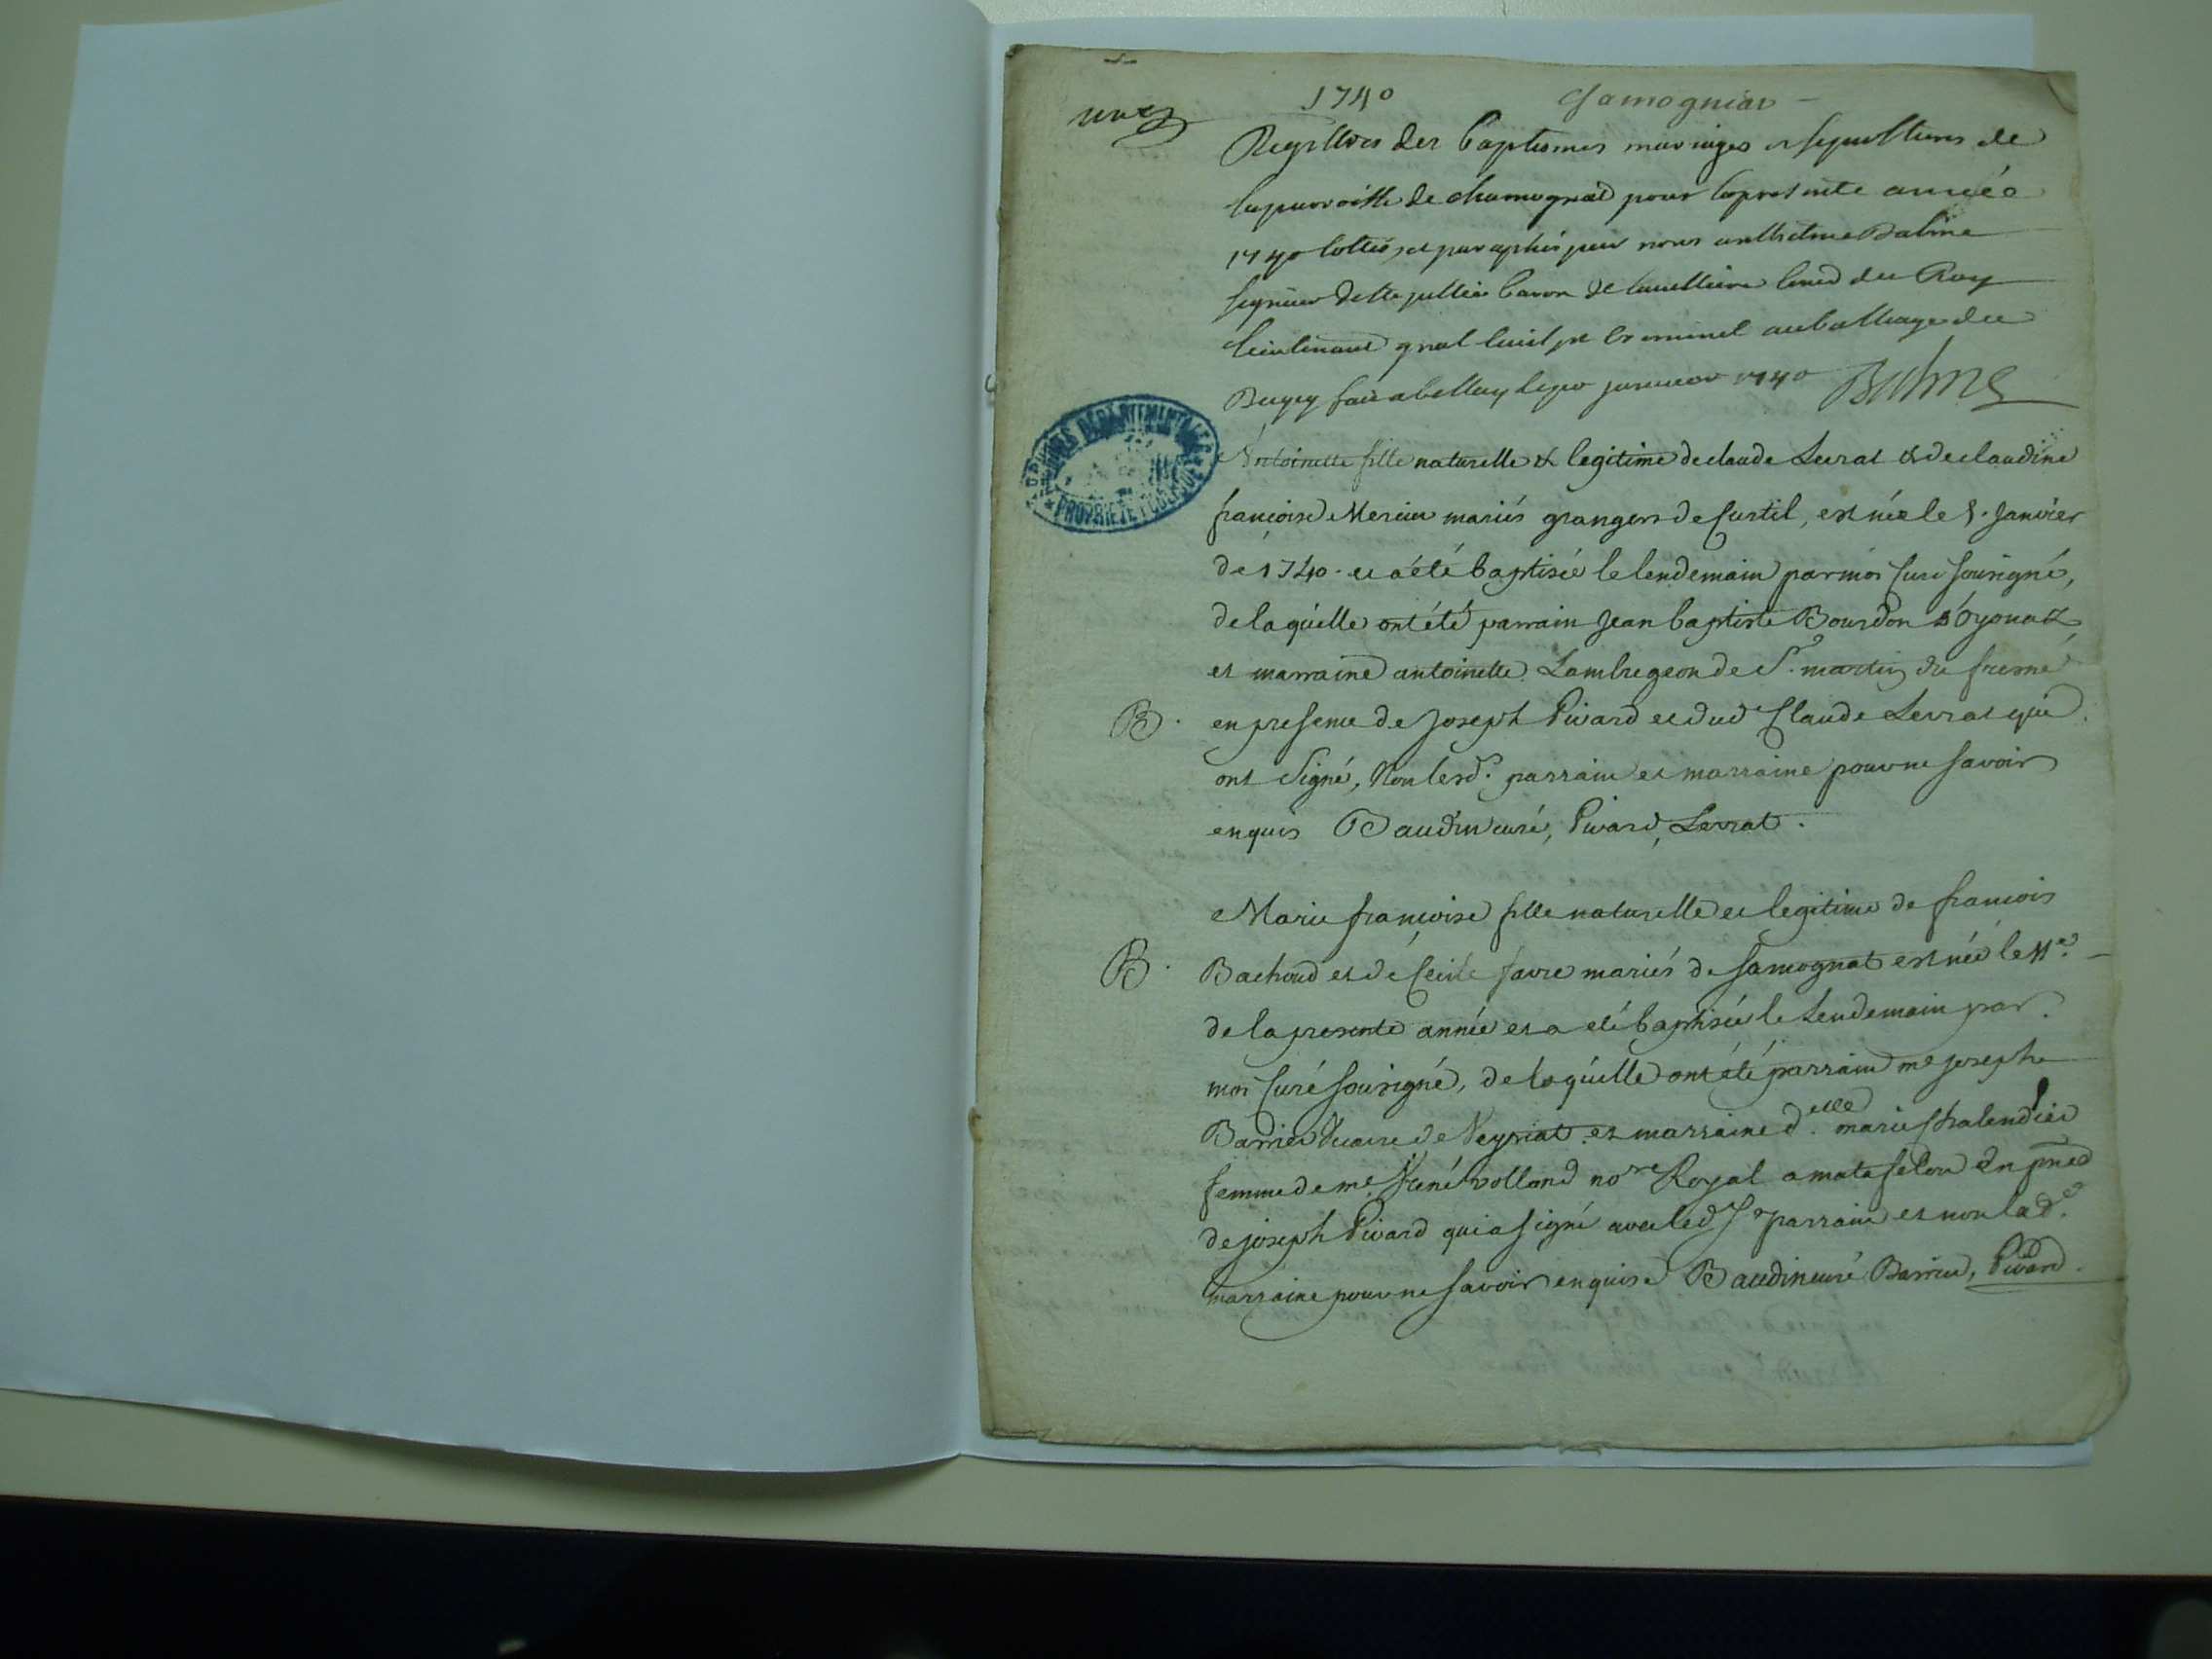 1740 Samogniat
une
Registres des baptesmes mariages et sepultures de
la parroisse de chamogniat pour la presente année
1740 cottés et paraphés par nous anthelme Balme
seigneur de Ste Jullie baron de Conser du Roy
Lieutenant gnal civil et criminel au balliage du
Bugey fait a belley le janvier 1740 Balme
ARCHIVES DÉPARTEMENTALES
PROPRIÉTÉ PUBLIQUE
Antoinette fille naturelle & legitime de claude Levrat & de claudine
françoise Mercier mariés grangers de Curtil, est née le 8. Janvier
de 1740. et a été baptisée le lendemain par moi Curé sousigné,
de laquelle ont été parrain Jean baptiste Bourdon d'Oyonax,
et marraine antoinette Lambregeon de St. martin du fresne
B. en presence de Joseph Pivard et dud Claude Levrat qui
ont signé, Non lesd. parrain et marraine pour ne savoir
enquis Baudin curé, Pivard, Levrat.
Marie françoise fille naturelle et legitime de francois
B. Bachoud et de Cécile favre mariés de Samognat est née le 11e.
de la presente année et a eté baptisée le Lendemain par
moi Curé sousigné, de laquelle ont été parrain me joseph
Barrier Vicaire de Veyriat et marraine d.elle marie Chalendier
femme de me René volland nore Royal a matafelon en pnce
de joseph Pivard qui a signé avec led Sr parrain et non lad.e
marraine pour ne savoir enquise Baudin curé Barrier, Pivard.